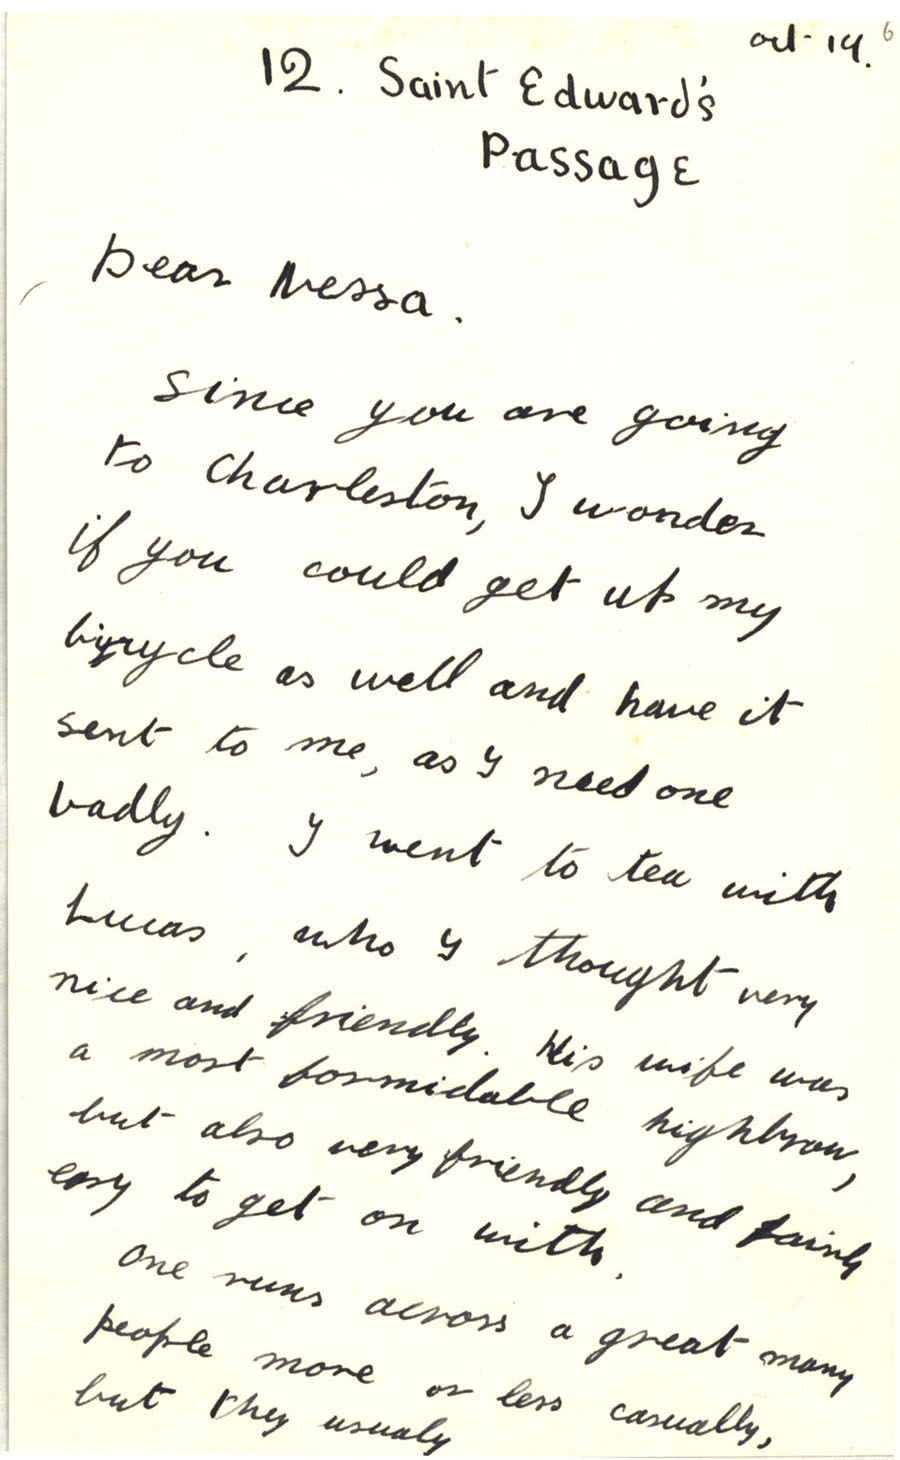 oct. 14. 6
12. Saint Edward's
Passage
Dear Nessa.
Since you are going
to Charleston, I wonder
if you could get up my
bycycle as well and have it
sent to me, as I need one
badly. I went to tea with
Lucas, who I thought very
nice and friendly. His wife was
a most formidable highbrow,
but also very friendly and fairly
easy to get on with.
One runs across a great many
people more or less casually,
but they usualy